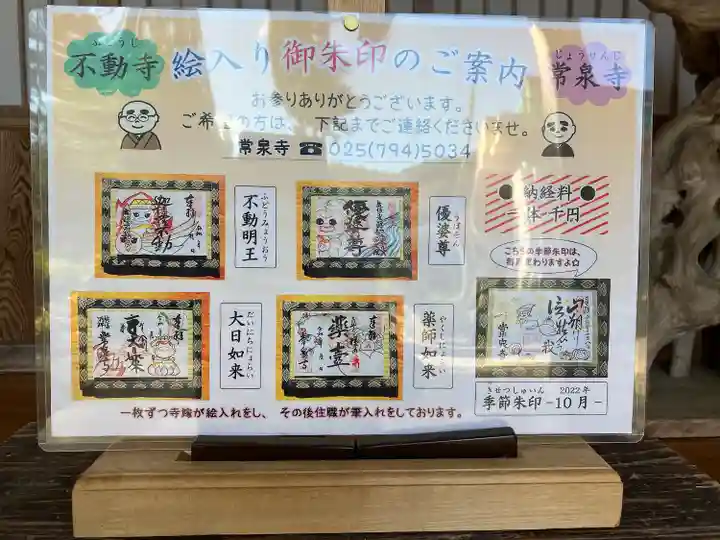 ふどうじ
不動寺
絵入り御朱印のご案内
じょうせんじ
常泉寺
お参りありがとうございます。
ご希望の方は、下記までご連絡くださいませ。
常泉寺 ☎ 025(794)5034
ふどうみょうおう
不動明王
うばそん
優婆尊
優婆尊
だいにちにょらい
大日如来
やくしにょらい
薬師如来
奉拝
●納経料●
こちらの季節朱印は、
きせつしゅいん 2022年
季節朱印 -10月-
一枚ずつ寺嫁が絵入れをし、その後住職が筆入れをしております。